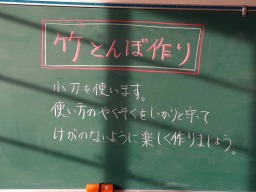 竹とんぼ作り
小刀を使います。
使い方のやくそくをしっかりと守って
けがのないように楽しく作りましょう。